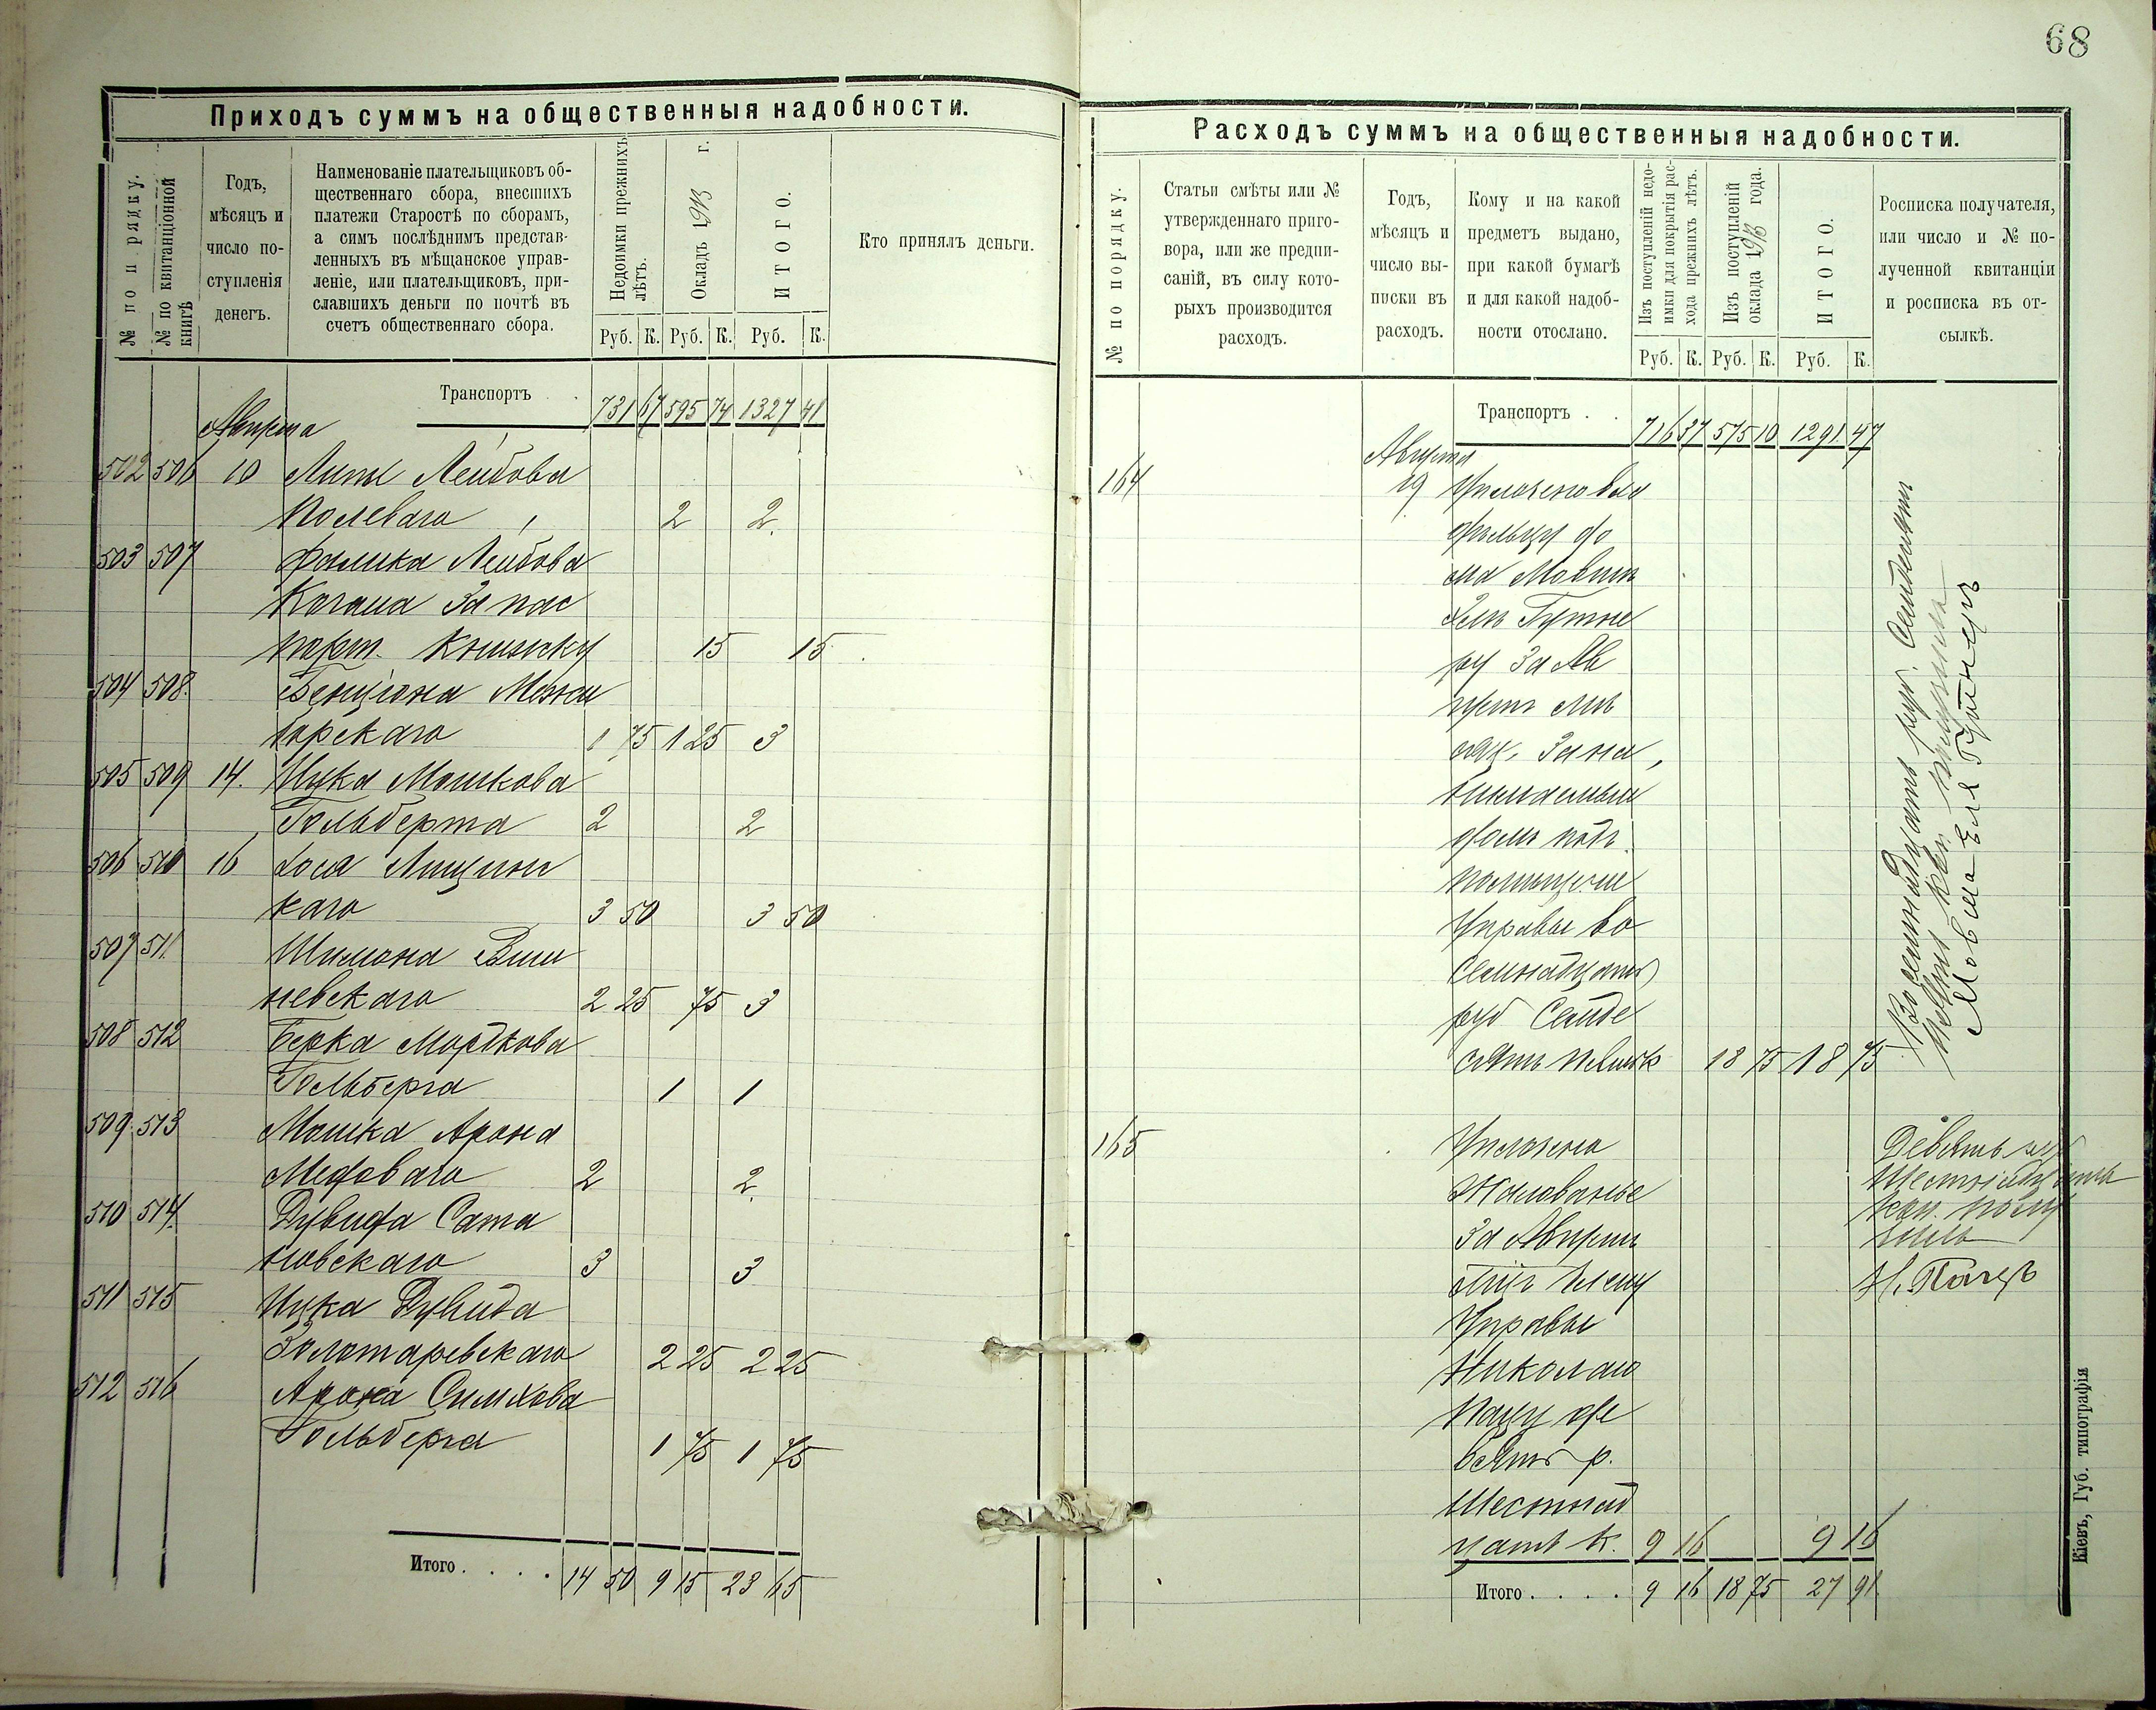 68
Приходъ суммъ на общественныя надобности.
№ по порядку.
№ по квитанціонной книгѣ
Годъ, мѣсяцъ и число поступленія денегъ.
Наименованіе плательщиковъ об-
щественнаго сбора, внесшихъ
платежи Старостѣ по сборамъ,
а симъ послѣднимъ представ-
ленныхъ въ мѣщанское управ-
леніе, или плательщиковъ, при-
славшихъ деньги по почтѣ въ
счетъ общественнаго сбора.
Недоимки прежнихъ лѣтъ.
Окладъ 1913 г.
ИТОГО.
Кто принялъ деньги.
Руб. К. Руб. К. Руб. К.
Транспортъ 731 67 595 74 1327 41
Августа
502 506 10 Липы Лейбова
Полеваго 2 2
503 507 Фалика Лейбова
Когана за пас
порт. книжку 15 15
504 508 Бенціона Межи
горскаго 1 75 1 25 3
505 509 14. Ицка Мошкова
Гольберта 2 2
506 510 16 Хоса Лищин
каго 3 50 3 50
507 511 Шимона Виш
невскаго 2 25 75 3
508 512 Берка Мордкова
Гольберга 1 1
509 513 Мошка Арона
Медоваго 2 2
510 514 Дувида Сата
новскаго 3 3
511 515 Ицка Дувида
Золотаревскаго 2 25 2 25
512 516 Арона Симхова
Гольберга 1 75 1 75
Итого 14 50 9 15 23 65
Расходъ суммъ на общественныя надобности.
№ по порядку.
Статьи смѣты или №
утвержденнаго приго-
вора, или же предпи-
саній, въ силу кото-
рыхъ производится
расходъ.
Годъ,
мѣсяцъ и
число вы-
писки въ
расходъ.
Кому и на какой
предметъ выдано,
при какой бумагѣ
и для какой надоб-
ности отослано.
Изъ поступленій недо-
имки для покрытія рас-
хода прежнихъ лѣтъ.
Изъ поступленій
оклада 1913 года.
ИТОГО.
Росписка получателя,
или число и № по-
лученной квитанціи
и росписка въ от-
сылкѣ.
Руб. К. Руб. К. Руб. К.
Транспортъ 716 37 575 10 1291 47
Августа
164 19 Уплочено вла
дѣльцу до
ма Мовши
Элю Гутне
ру за Ав
густъ мѣ
сяц. за на,
нимаемый
домъ подъ
помѣщеніе
Управы во
семнадцать
руб Семде
сятъ пять к 18 75 18 75
Восемнадцать руб. Семдесятъ
пять коп. получилъ
Мовша Эля Гутнеръ
165 Уплочено
Жалованье
за Августъ
Управы
Николаю
Пацу де
вять р.
Шестнад
цать к. 9 16 9 16
Девять руб
Шестнадцать
коп. полу
чилъ
Н. Пацъ
Итого 9 16 18 75 27 91
Кіевъ, Губ. типографія